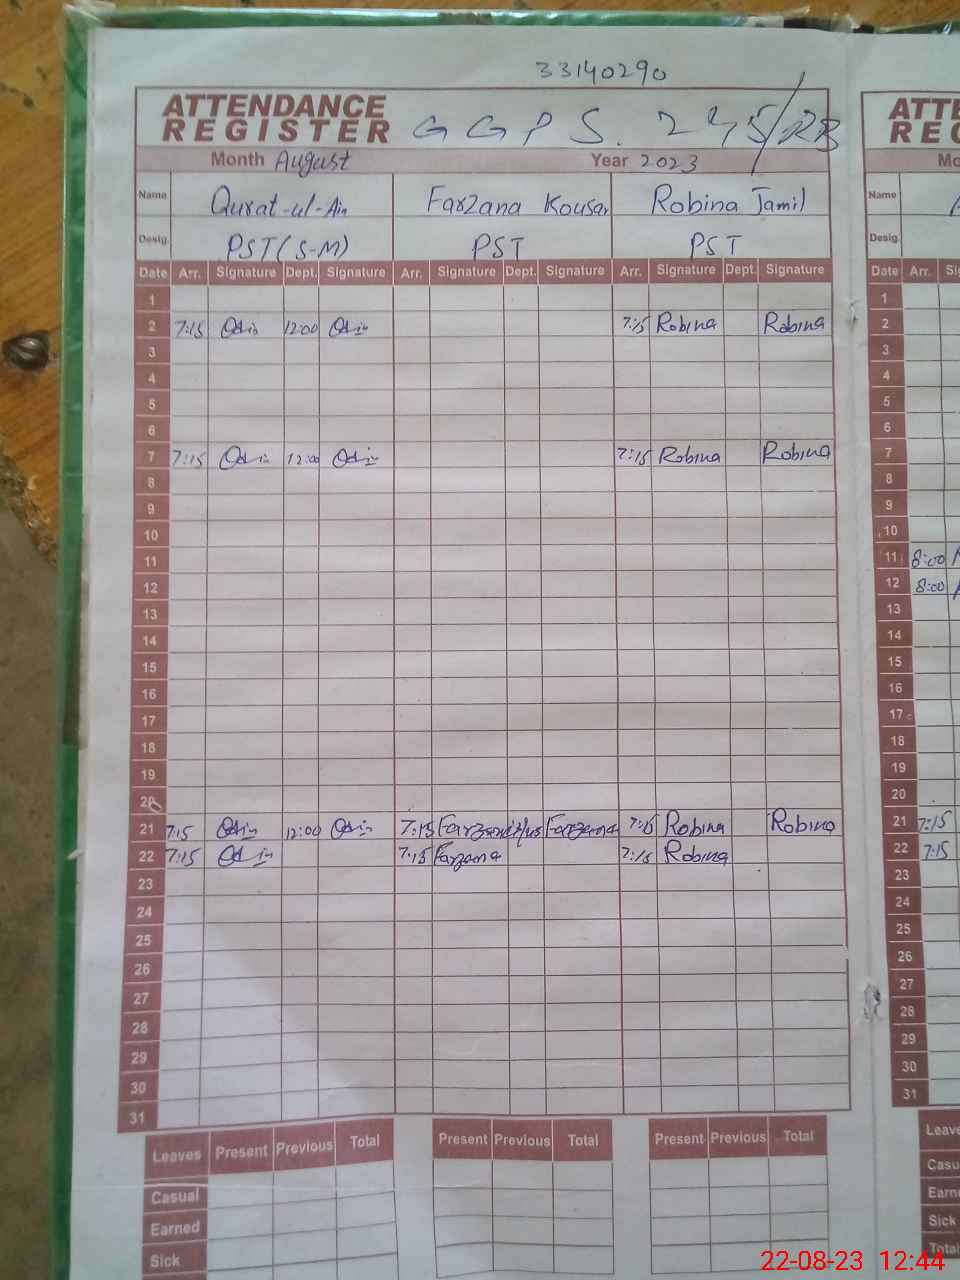 33140290
ATTENDANCE REGISTER GGPS. 245/RB
Month August Year 2023
Name Qurat-ul-Ain Farzana Kousar Robina Jamil
Desig. PST(S-M) PST PST
Date Arr. Signature Dept. Signature Arr. Signature Dept. Signature Arr. Signature Dept. Signature
1
2 7:15 12:00 7:15 Robina Robina
3
4
5
6
7 7:15 12:00 7:15 Robina Robina
8
9
10
11
12
13
14
15
16
17
18
19
20
21 7:15 12:00 7:15 Farzana 7:15 Robina Robina
22 7:15 7:15 Farzana 7:15 Robina
23
24
25
26
27
28
29
30
31
Leaves Present Previous Total Present Previous Total Present Previous Total
Casual
Earned
Sick
ATTE
REG
Mo
Name
Desig.
Date Arr. Sig
1
2
3
4
5
6
7
8
9
10
11 8:00
12 8:00
13
14
15
16
17
18
19
20
21 7:15
22 7:15
23
24
25
26
27
28
29
30
31
Leave
Casu
Earn
Sick
Total
22-08-23 12:44